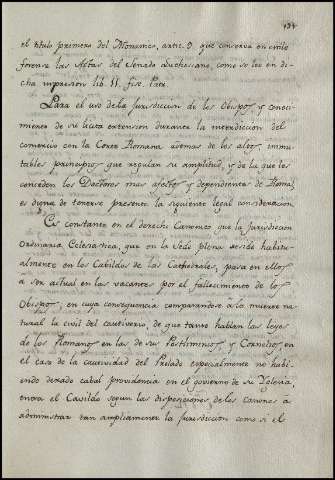 134
el titulo primero del Monumo, artic. 9. que conserva en estilo
forense las Actas del Senado Luchesano, como se lee en di-
cha impresion lib. II. fisc. Patr.
Para el uso de la Jurisdiccion de los Obispos, y conoci-
miento de su licita extension durante la interdiccion del
comercio con la Corte Romana ademas de los altos, inmu-
tables principios que regulan su amplitud, y de la que les
conceden los Doctores mas afectos, y dependientes de Roma,
es digna de tenerse presente la siguiente legal consideracion.
Es constante en el derecho Canonico que la Jurisdiccion
Ordinaria Eclesiastica, que en la Sede plena reside habitu-
almente en los Cabildos de las Cathedrales, pasa en ellos
a ser actual en las vacantes por el fallecimiento de los
Obispos; en cuya consequencia comparandose à la muerte na-
tural la civil del cautiverio, de que tanto hablan las leyes
de los Romanos en las de sus Postliminios, y Cornelios, en
el caso de la cautividad del Prelado especialmente no habi-
endo dexado cabal providencia en el govierno de su Yglesia,
entra el Cavildo segun las disposiciones de los canones à
administrar tan ampliamente la Jurisdiccion como si el